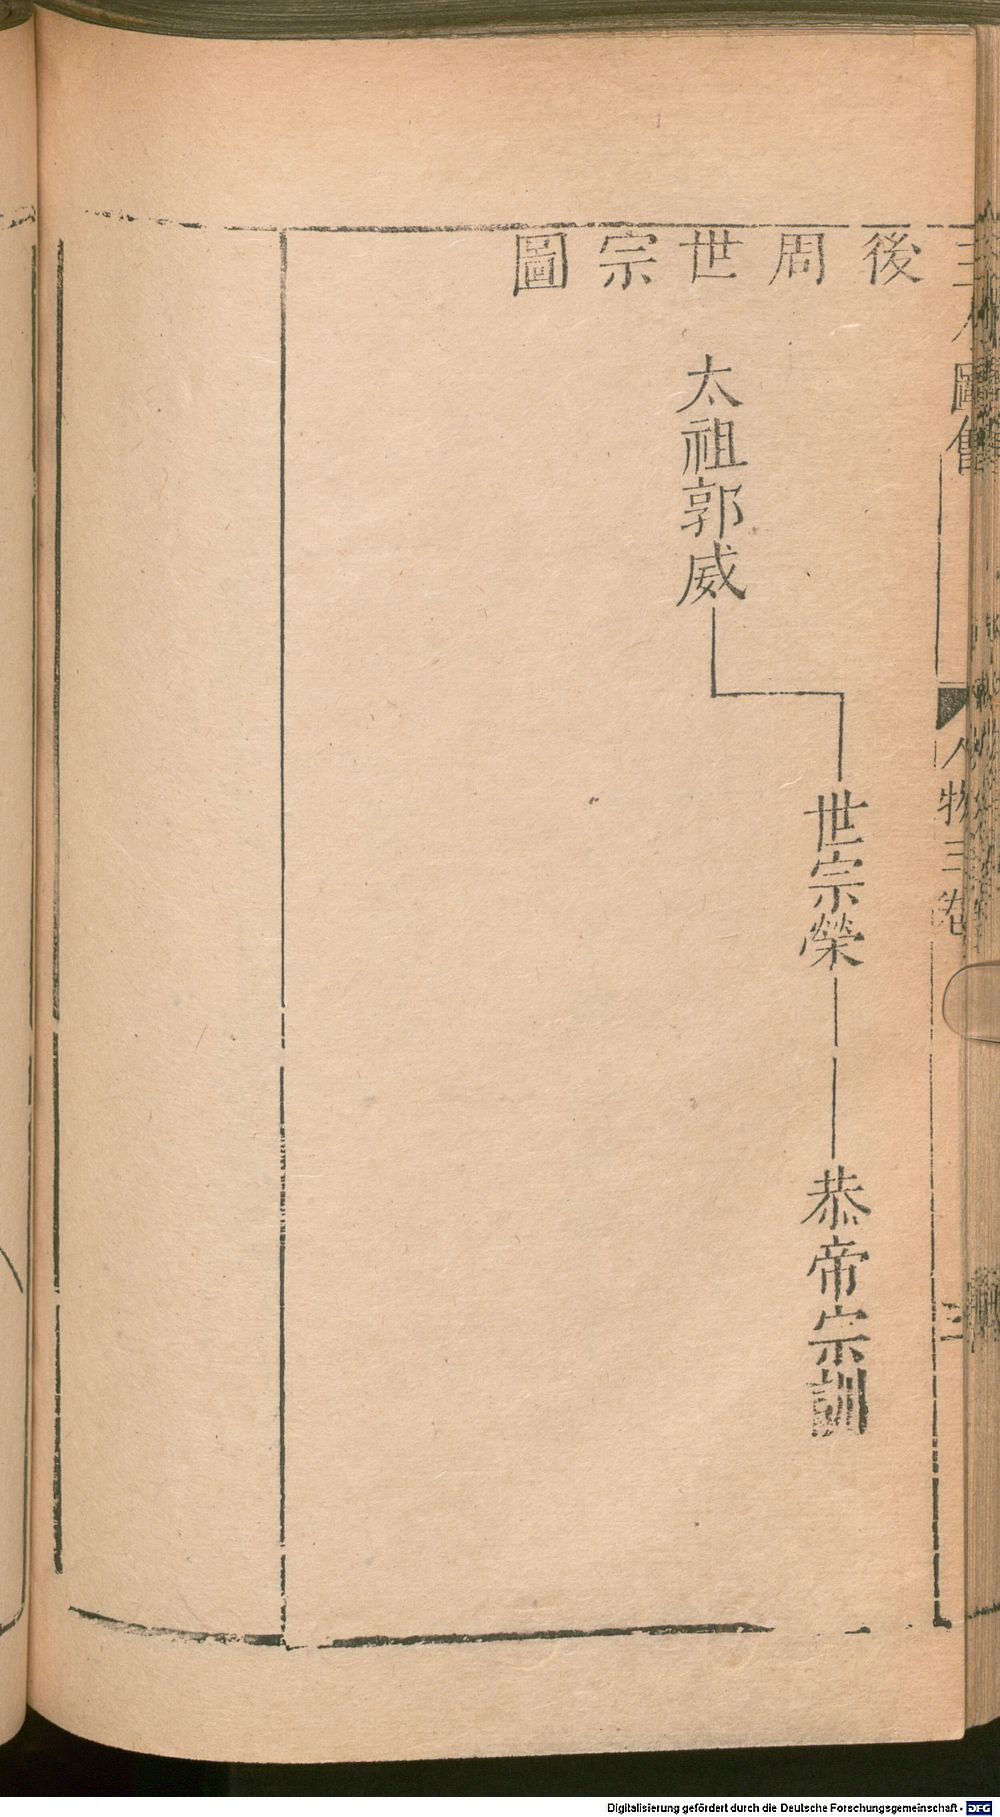 後周世宗圖
太祖郭威
世宗榮
恭帝宗訓
三才圖會
人物三卷
Digitalisierung gefördert durch die Deutsche Forschungsgemeinschaft - DFG